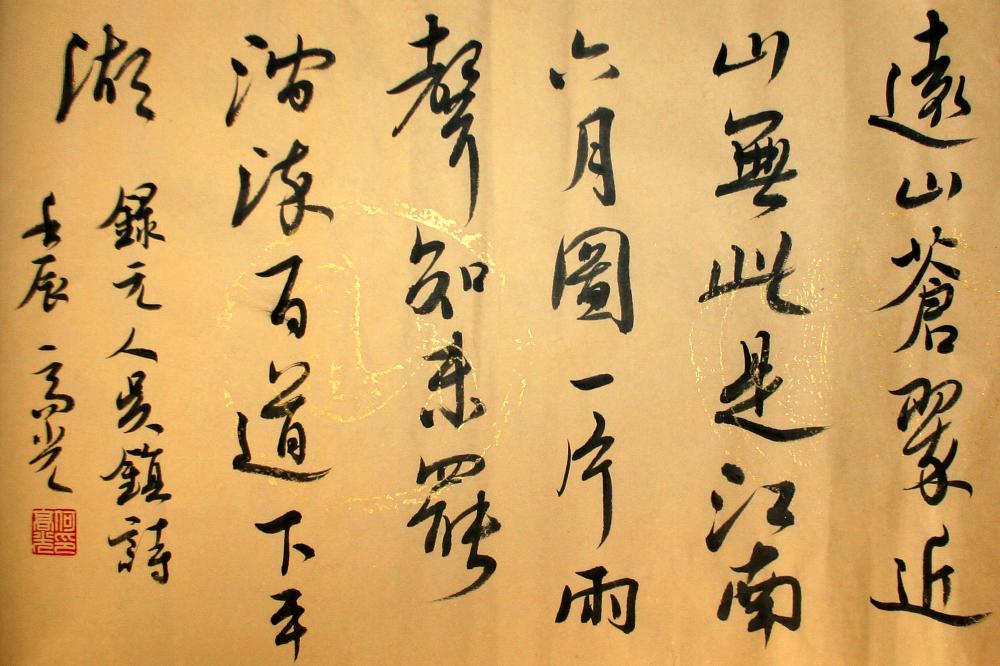 遠山蒼翠近
山無此是江南
六月圖一片雨
聲知未罷
百道下平
湖
錄元人吳鎮詩
壬辰 高光
何印高光